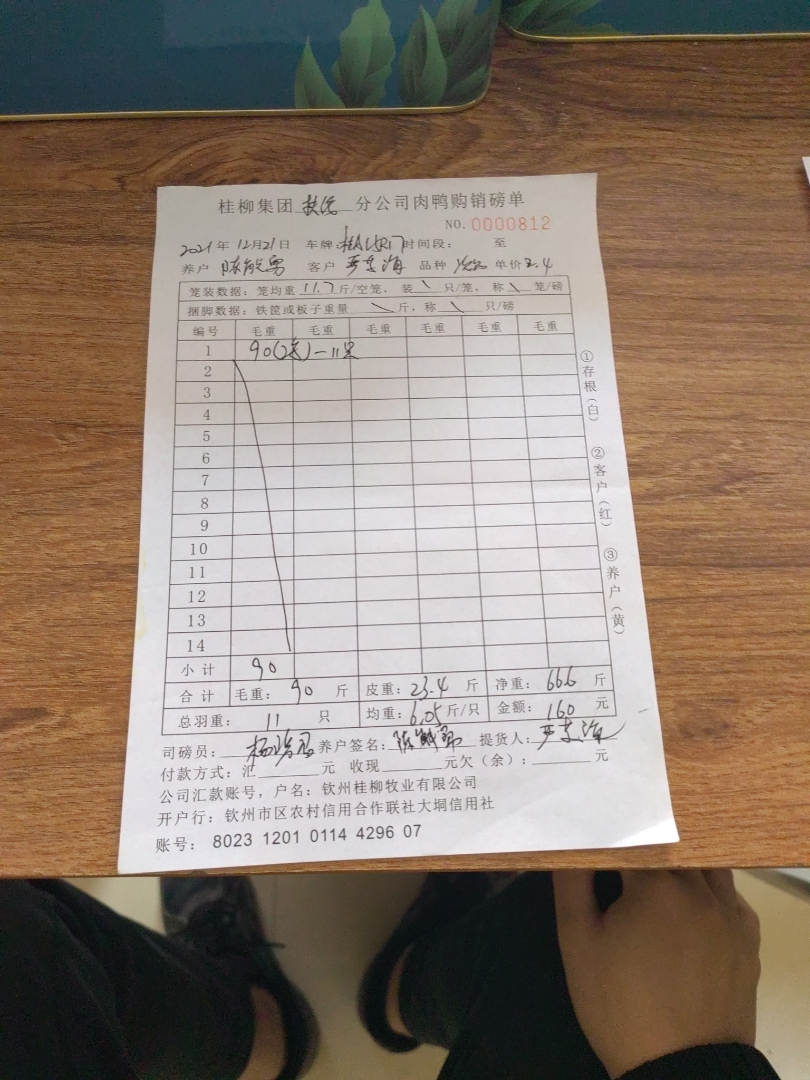 桂柳集团 分公司肉鸭购销磅单
NO. 0000812
2021年12月21日 车牌: 时间段: 至
养户 客户 严东海 品种 单价2.4
笼装数据: 笼均重 11.7 斤/空笼, 装 \ 只/笼, 称 \ 笼/磅
捆脚数据: 铁筐或板子重量 \ 斤, 称 \ 只/磅
编号 毛重 毛重 毛重 毛重 毛重 毛重
1 90(2笼)-11只
2
3
4
5
6
7
8
9
10
11
12
13
14
小计 90
合计 毛重: 90 斤 皮重: 23.4 斤 净重: 66.6 斤
总羽重: 11 只 均重: 6.05 斤/只 金额: 160 元
司磅员: 养户签名: 提货人: 严东海
付款方式: 汇 元 收现 元欠(余): 元
公司汇款账号, 户名: 钦州桂柳牧业有限公司
开户行: 钦州市区农村信用合作联社大垌信用社
账号: 8023 1201 0114 4296 07
①存根(白)
②客户(红)
③养户(黄)